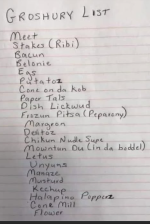 GROSHURY LIST
Meet
Stakes (Ribi)
Bacun
Belonie
Eas
Putatoz
Cone on da kob
Paper Tals
Dish Lickwud
Frozun Pitsa (Peparony)
Margreen
Deetoz
Chikun Nude Supe
Mountun Due (In da boddel)
Letus
Unyuns
Manaze
Musturd
Kechup
Halapino Popperz
Cone Mill
Flower